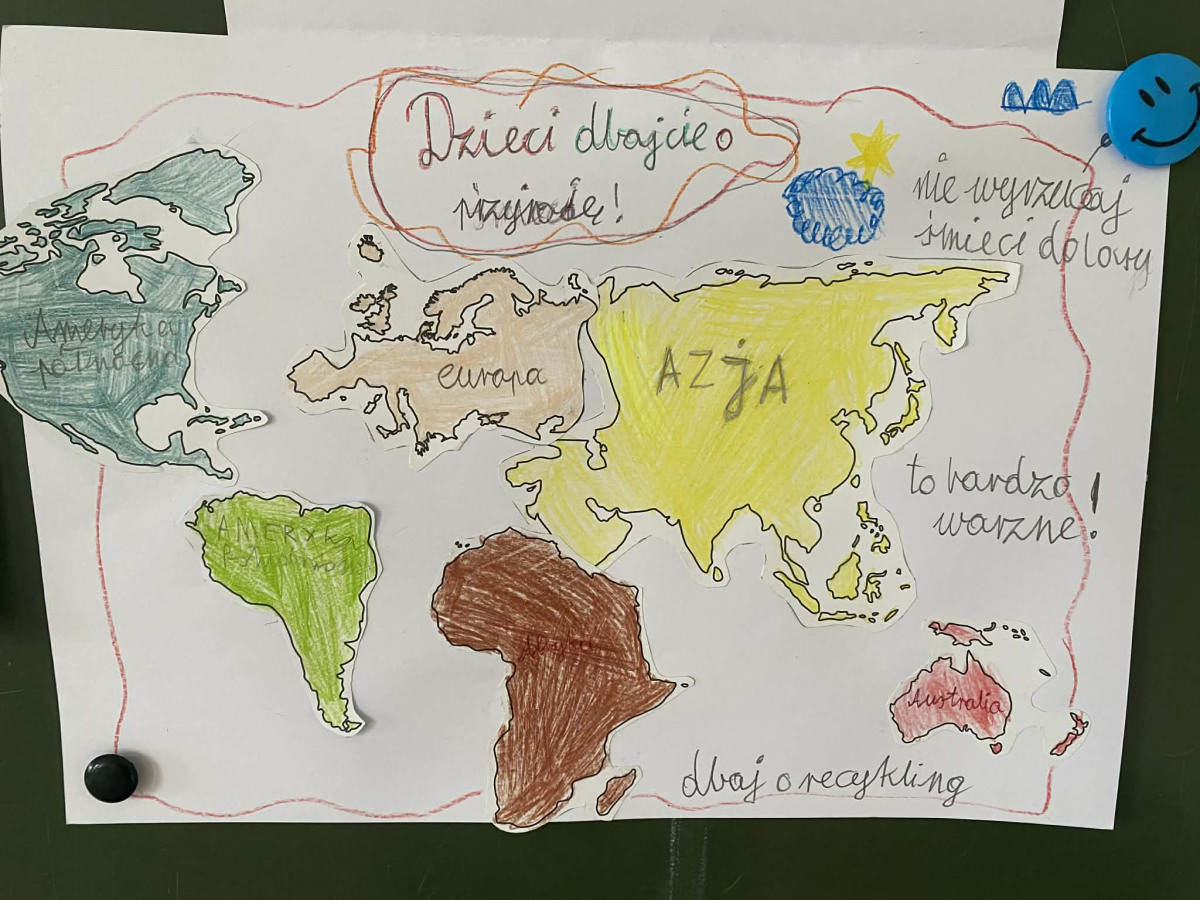 Dzieci dbajcie o
przyrodę!
nie wyrzucaj
śmieci do lowy
Ameryka
północna
europa
AZjA
to bardzo
warzne!
AMERYKA
Południowa
Afryka
Australia
dbaj o recykling